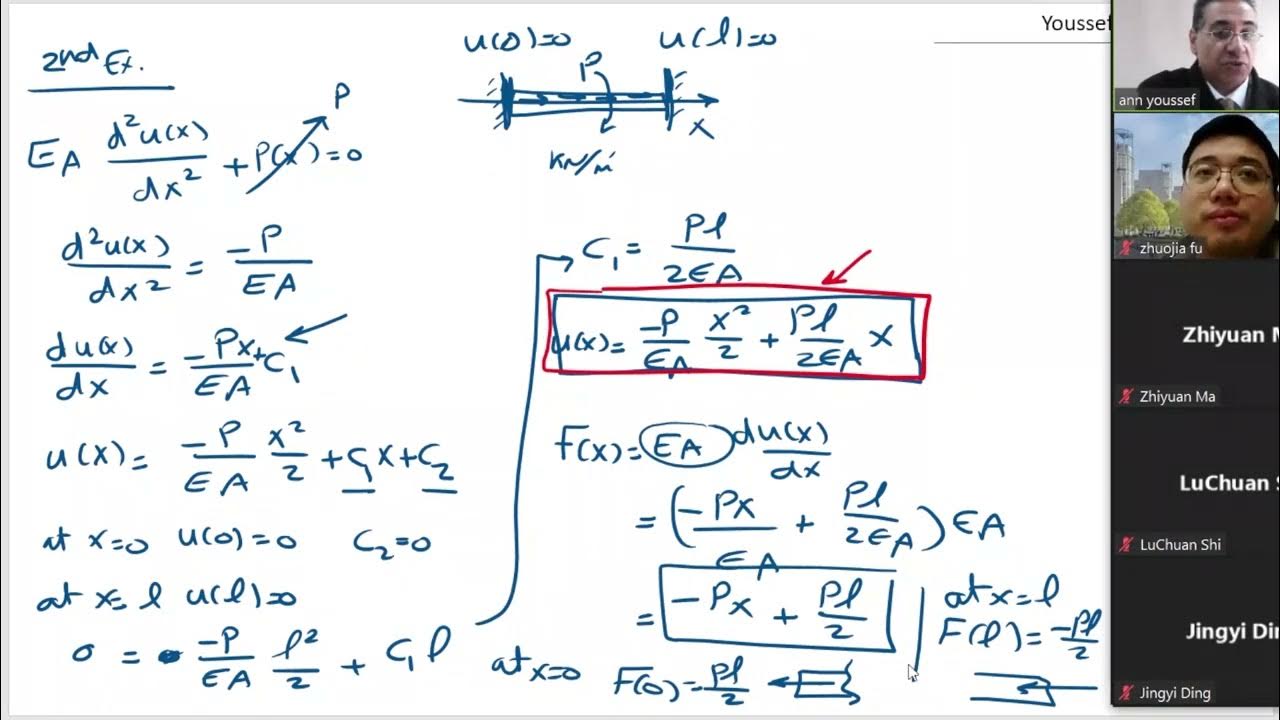 2nd Ex.
EA d²u(x)/dx² + P(x) = 0
P
d²u(x)/dx² = -P/EA
du(x)/dx = -Px/EA + C₁
u(x) = -P/EA x²/2 + C₁x + C₂
at x=0 u(0)=0 C₂=0
at x=l u(l)=0
0 = -P/EA l²/2 + C₁l
u(0)=0 u(l)=0
P
x
KN/m'
C₁ = Pl/2EA
u(x) = -P/EA x²/2 + Pl/2EA x
F(x) = EA du(x)/dx
= (-Px/EA + Pl/2EA) EA
= -Px + Pl/2
at x=0 F(0) = Pl/2
at x=l
F(l) = -Pl/2
Youssef
ann youssef
zhuojia fu
Zhiyuan M
Zhiyuan Ma
LuChuan S
LuChuan Shi
Jingyi Din
Jingyi Ding